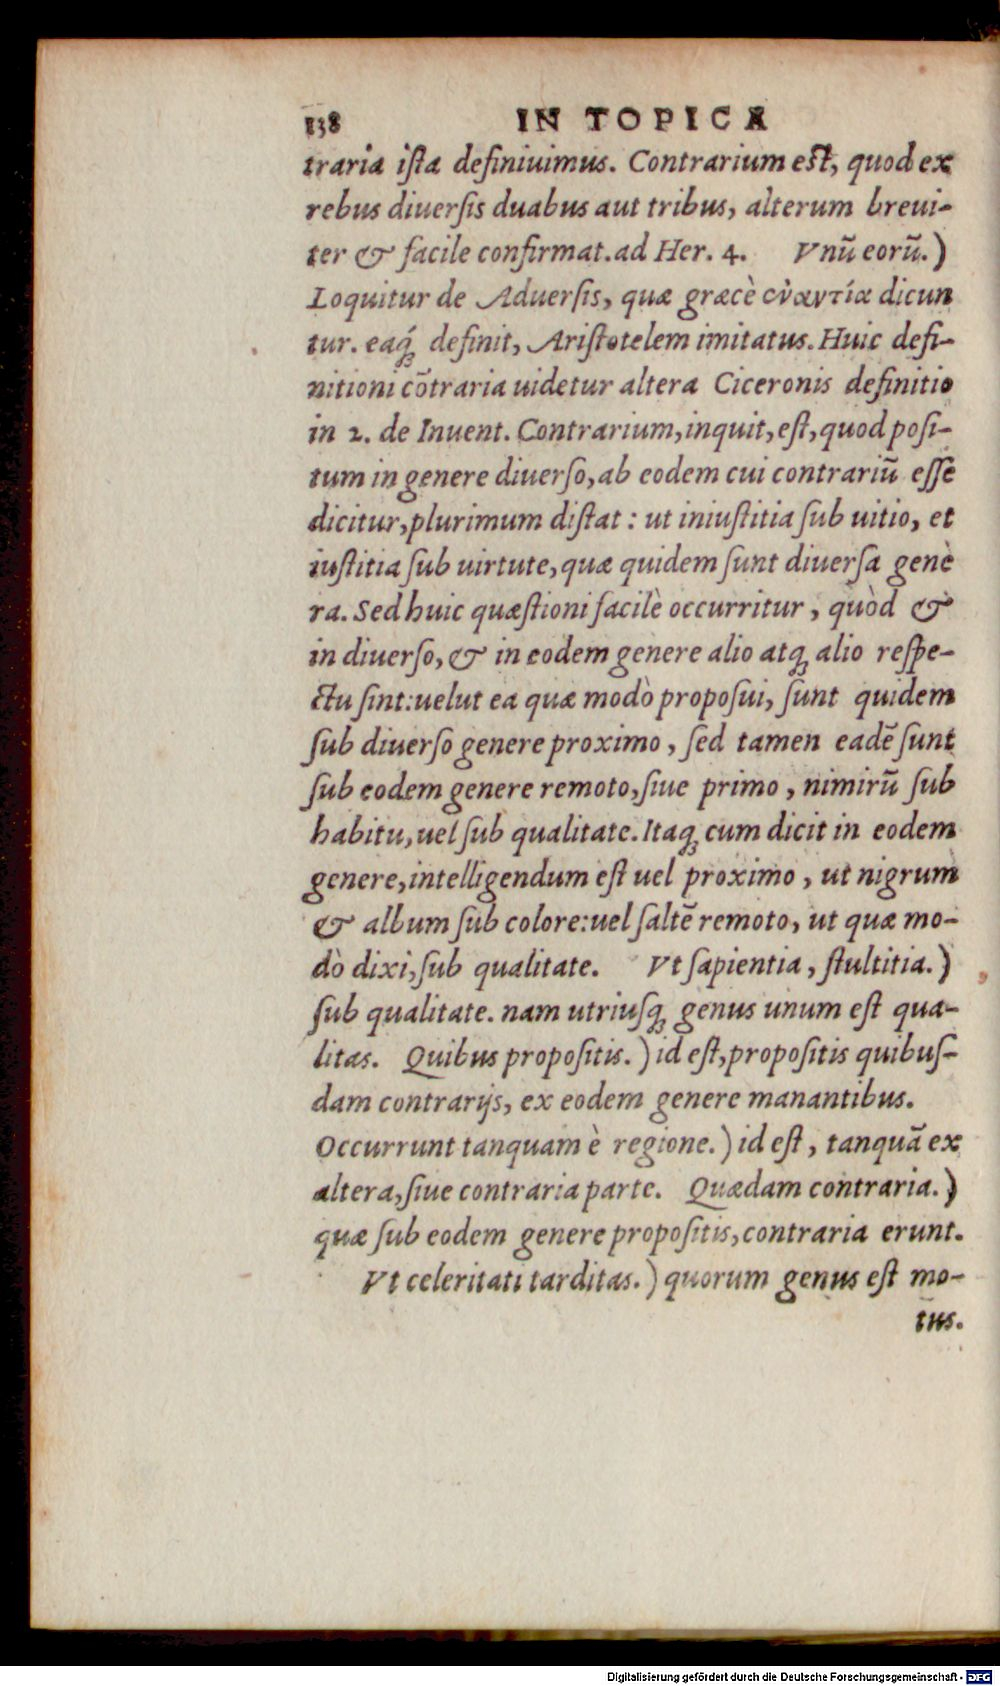 138 IN TOPICA
traria ista definiuimus. Contrarium est, quod ex
rebus diuersis duabus aut tribus, alterum breui-
ter & facile confirmat. ad Her. 4. Vnũ eorũ.)
Loquitur de Aduersis, quæ græcè ἐναντία dicun
tur. eaq́; definit, Aristotelem imitatus. Huic defi-
nitioni cõtraria uidetur altera Ciceronis definitio
in 2. de Inuent. Contrarium, inquit, est, quod posi-
tum in genere diuerso, ab eodem cui contrariũ esse
dicitur, plurimum distat: ut iniustitia sub uitio, et
iustitia sub uirtute, quæ quidem sunt diuersa genè
ra. Sed huic quæstioni facilè occurritur, quòd &
in diuerso, & in eodem genere alio atq; alio respe-
ctu sint: uelut ea quæ modò proposui, sunt quidem
sub diuerso genere proximo, sed tamen eadẽ sunt
sub eodem genere remoto, siue primo, nimirũ sub
habitu, uel sub qualitate. Itaq; cum dicit in eodem
genere, intelligendum est uel proximo, ut nigrum
& album sub colore: uel saltẽ remoto, ut quæ mo-
dò dixi, sub qualitate. Vt sapientia, stultitia.)
sub qualitate. nam utriusq; genus unum est qua-
litas. Quibus propositis.) id est, propositis quibus-
dam contrarijs, ex eodem genere manantibus.
Occurrunt tanquam è regione.) id est, tanquã ex
altera, siue contraria parte. Quædam contraria.)
quæ sub eodem genere propositis, contraria erunt.
Vt celeritati tarditas.) quorum genus est mo-
tus.
Digitalisierung gefördert durch die Deutsche Forschungsgemeinschaft - DFG